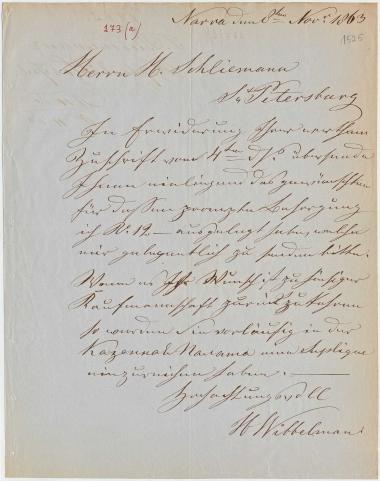 173 (a)
Narva den 8ten Novr 1863
1525
Herrn H. Schliemann
St Petersburg
In Erwiderung Ihrer werthen
Zuschrift vom 4ten ds. übersende
Ihnen einliegend das gewünschte
für dessen prompte Besorgung
ich R. 12 — ausgelegt habe, welche
mir gelegentlich zu senden bitte.
Wenn es Ihr Wunsch ist zu hiesiger
Kaufmannschaft zurückzukehren
so würden Sie vorläufig in der
Kazennaja Palata eine Suplique
einzureichen haben. —
Hochachtungsvoll
H Wibbelman